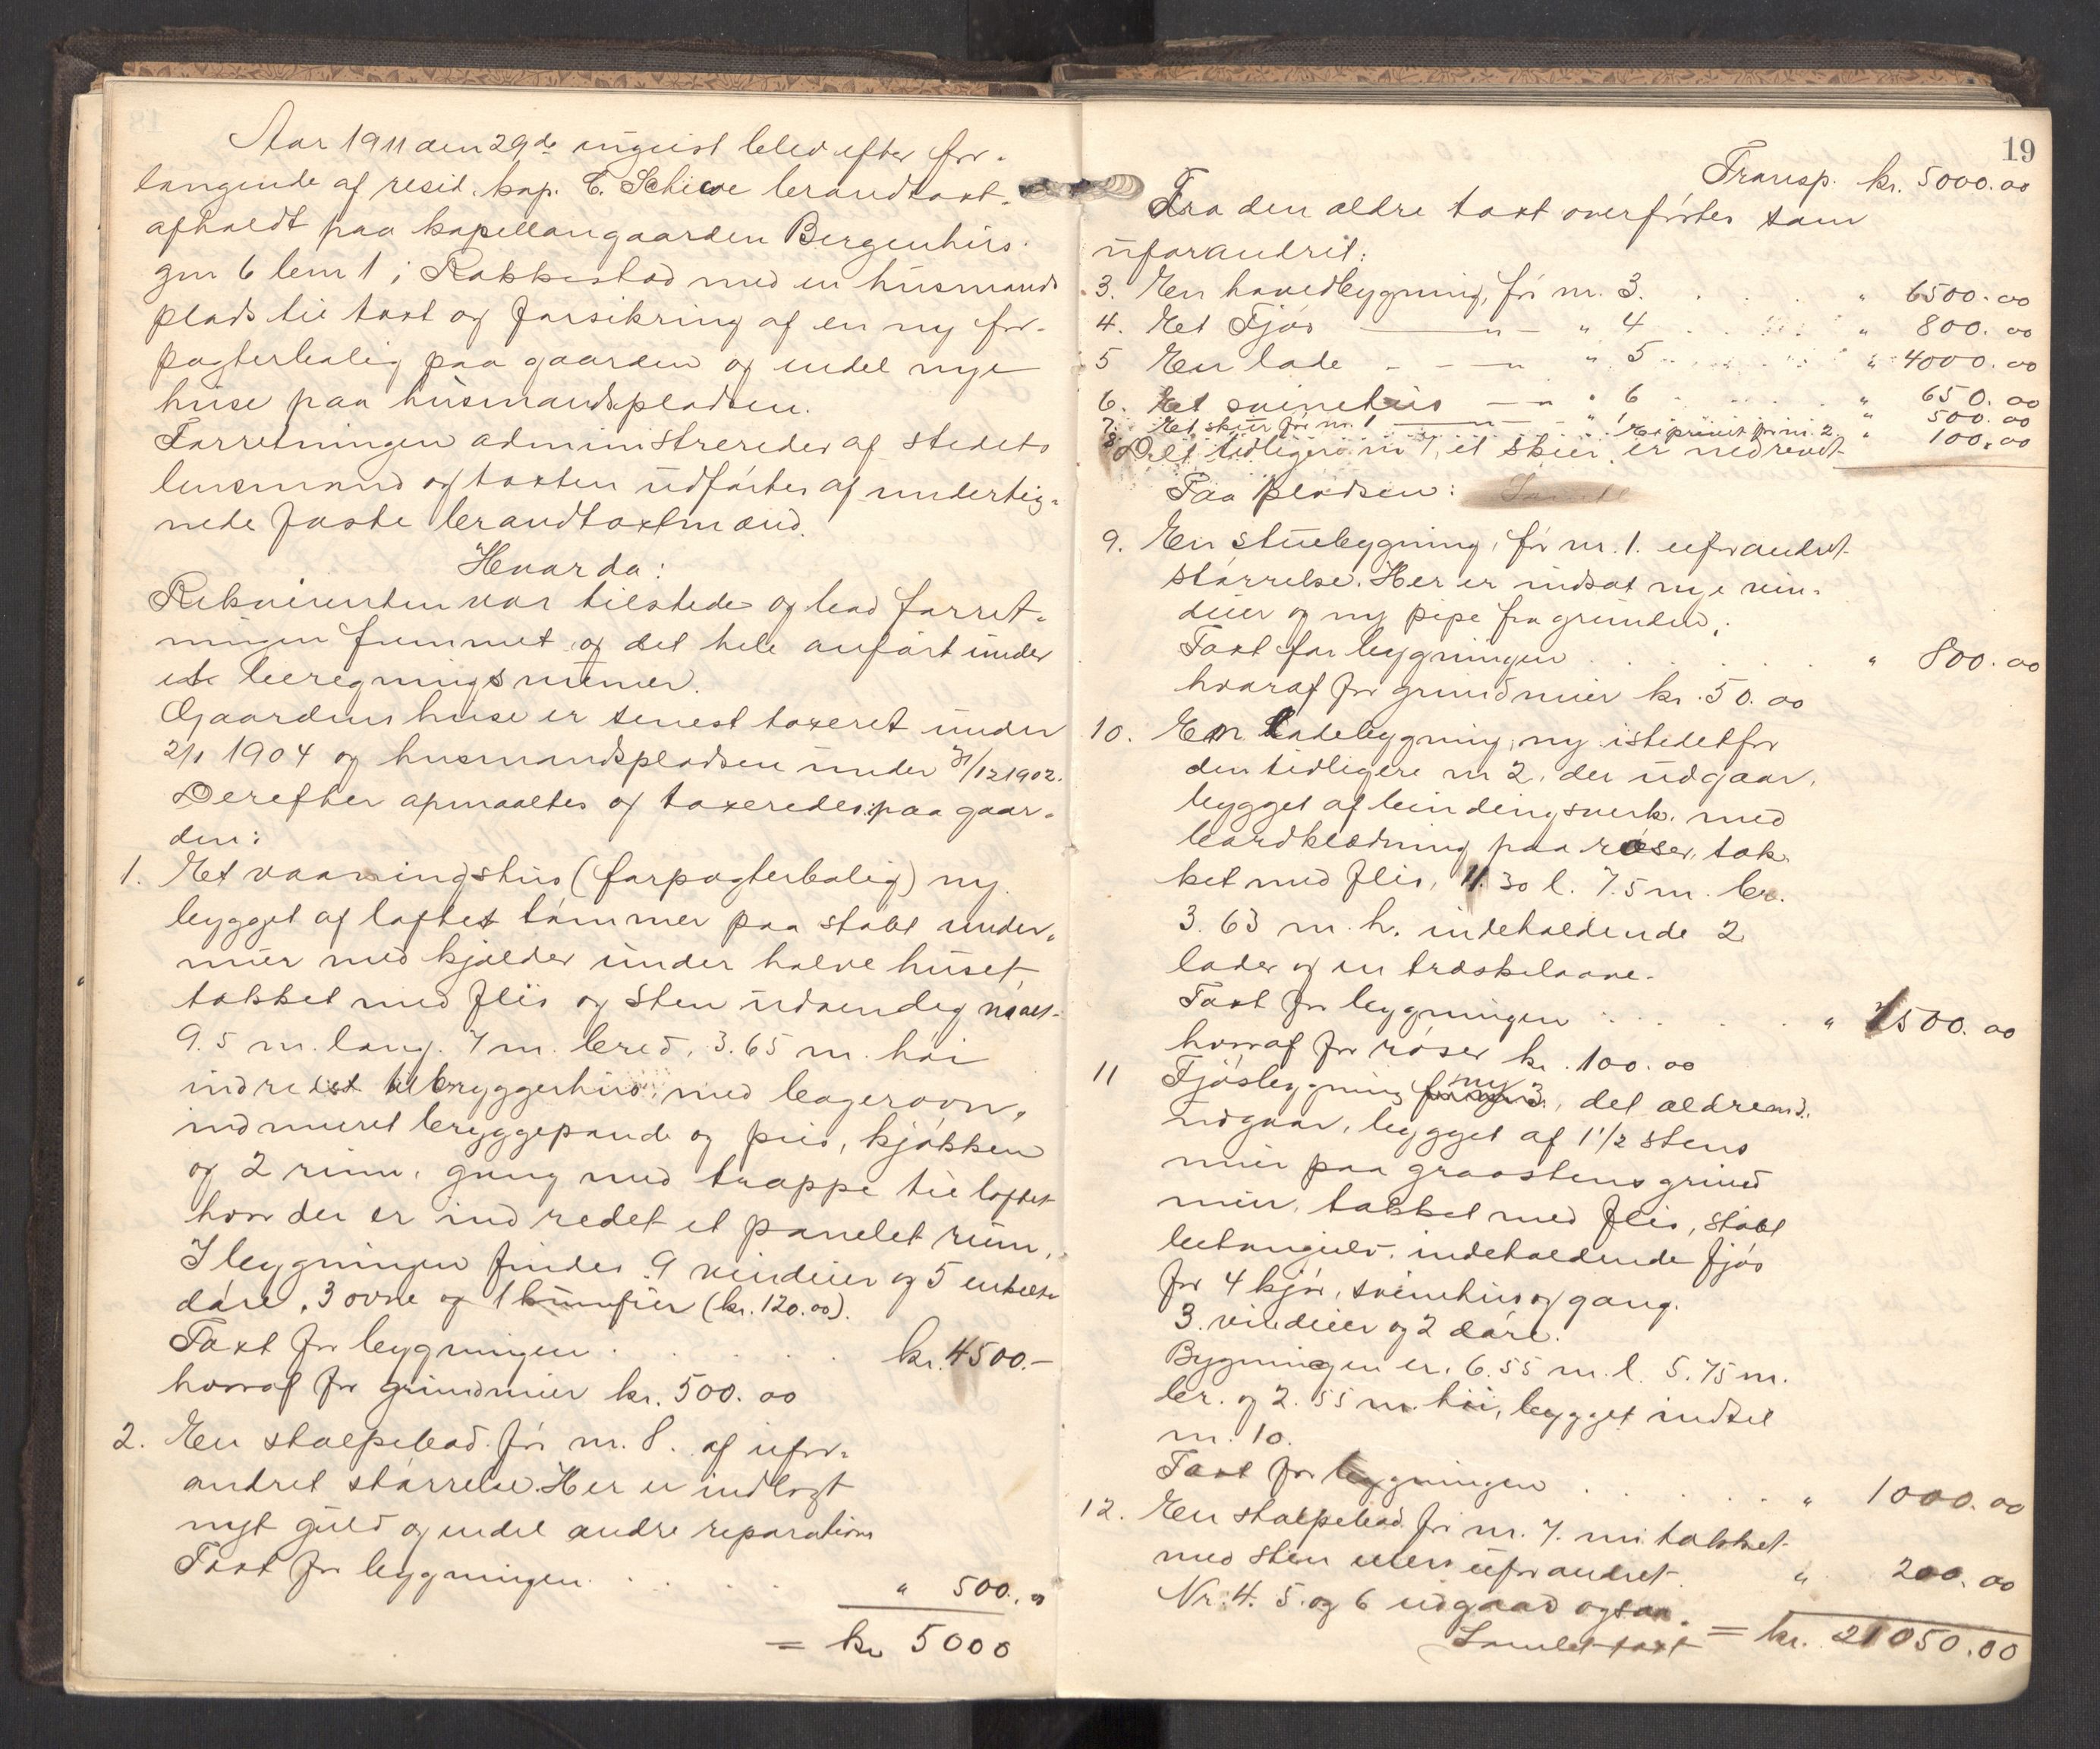 Aar 1911 den 29de august blev efter for-
langende af resid. kap. E. Schiwe brandtaxt
afholdt paa kapellangaarden Bergenhus
gnr 6 bnr 1 i Rakkestad med en husmands
plads til taxt og forsikring af en ny for-
pagterbolig paa gaarden og endel nye
huse paa husmandspladsen.
Forretningen administreredes af stedets
lensmand og taxten udførtes af underteg-
nede faste brandtaxtmænd.
Hvorda:
Rekvirenten var tilstede og bad forret-
ningen fremmet og det hele anført under
et beregningsnumer.
Gaardens huse er senest taxeret under
2/1 1904 og husmandspladsen under 31/12 1902.
Derefter opmaaltes og taxeredes paa gaar-
den:
1. Et vaaningshus (forpagterbolig) ny
bygget af laftet tømmer paa støbt under-
mur med kjælder under halve huset
tækket med flis og sten udvendig maalt
9.5 m. lang. 7 m. bred, 3.65 m. høi
indredet til bryggerhus, med bagerovn,
indmuret bryggepande og peis, kjøkken
og 2 rum, gang med trappe til loftet
hvor der er indredet et panelet rum.
I bygningen findes 9 vinduer og 5 enkelte
døre, 3 ovne og 1 komfur (kr. 120.00).
Taxt for bygningen . . . . . kr. 4500.–
hvoraf for grundmur kr. 500.00
2. En stolpebod før nr. 8. af ufor-
andret størrelse. Her er indlagt
nyt gulv og endel andre reparationer
Taxt for bygningen . . . . " 500. "
= kr 5000
19
Transp. kr. 5000.00
Fra den ældre taxt overførtes som
uforandret:
3. En hovedbygning, før nr. 3. . . . " 6500.00
4. Et Fjøs — " — " 4 . . . " 800.00
5 En lade - - — " " 5 . . . " 4000.00
6. Et svinehus — " " 6 . . . " 650.00
7. Et skur før nr. 1 . . . " 500.00
8 Et privet før nr. 2. " 100.00
Det tidligere nr 7, et skur er nedrevet
Paa pladsen:
9. En stuebygning, før nr. 1. uforandret
størrelse. Her er indsat nye vin-
duer og ny pipe fra grunden.
Taxt for bygningen . . . . . " 800.00
hvoraf for grundmur kr. 50.00
10. En Ladebygning, ny istedetfor
den tidligere nr 2, der udgaar,
bygget af bindingsverk med
bordklædning paa røser, tæk-
ket med flis, 11.30 l. 7.5 m. br.
3.63 m. h. indeholdende 2
lader og en træskelaave.
Taxt for bygningen . . . . " 1500.00
hvoraf for røser kr. 100.00
11 Fjøsbygning ny, det ældre nr 3.
udgaar, bygget af 1 1/2 stens
mur paa graastens grund
mur, tækket med flis, støbt
betongulv, indeholdende fjøs
for 4 kjør, svinehus og gang.
3 vinduer og 2 døre.
Bygningen er 6.55 m. l. 5.75 m.
br. og 2.55 m. høi, bygget indtil
nr. 10.
Taxt for bygningen . . . . " 1000.00
12. En stolpebod før nr. 7. nu tækket
med sten ellers uforandret. " 200.00
Nr. 4. 5. og 6 udgaar ogsaa.
Samlet taxt = kr. 21050.00